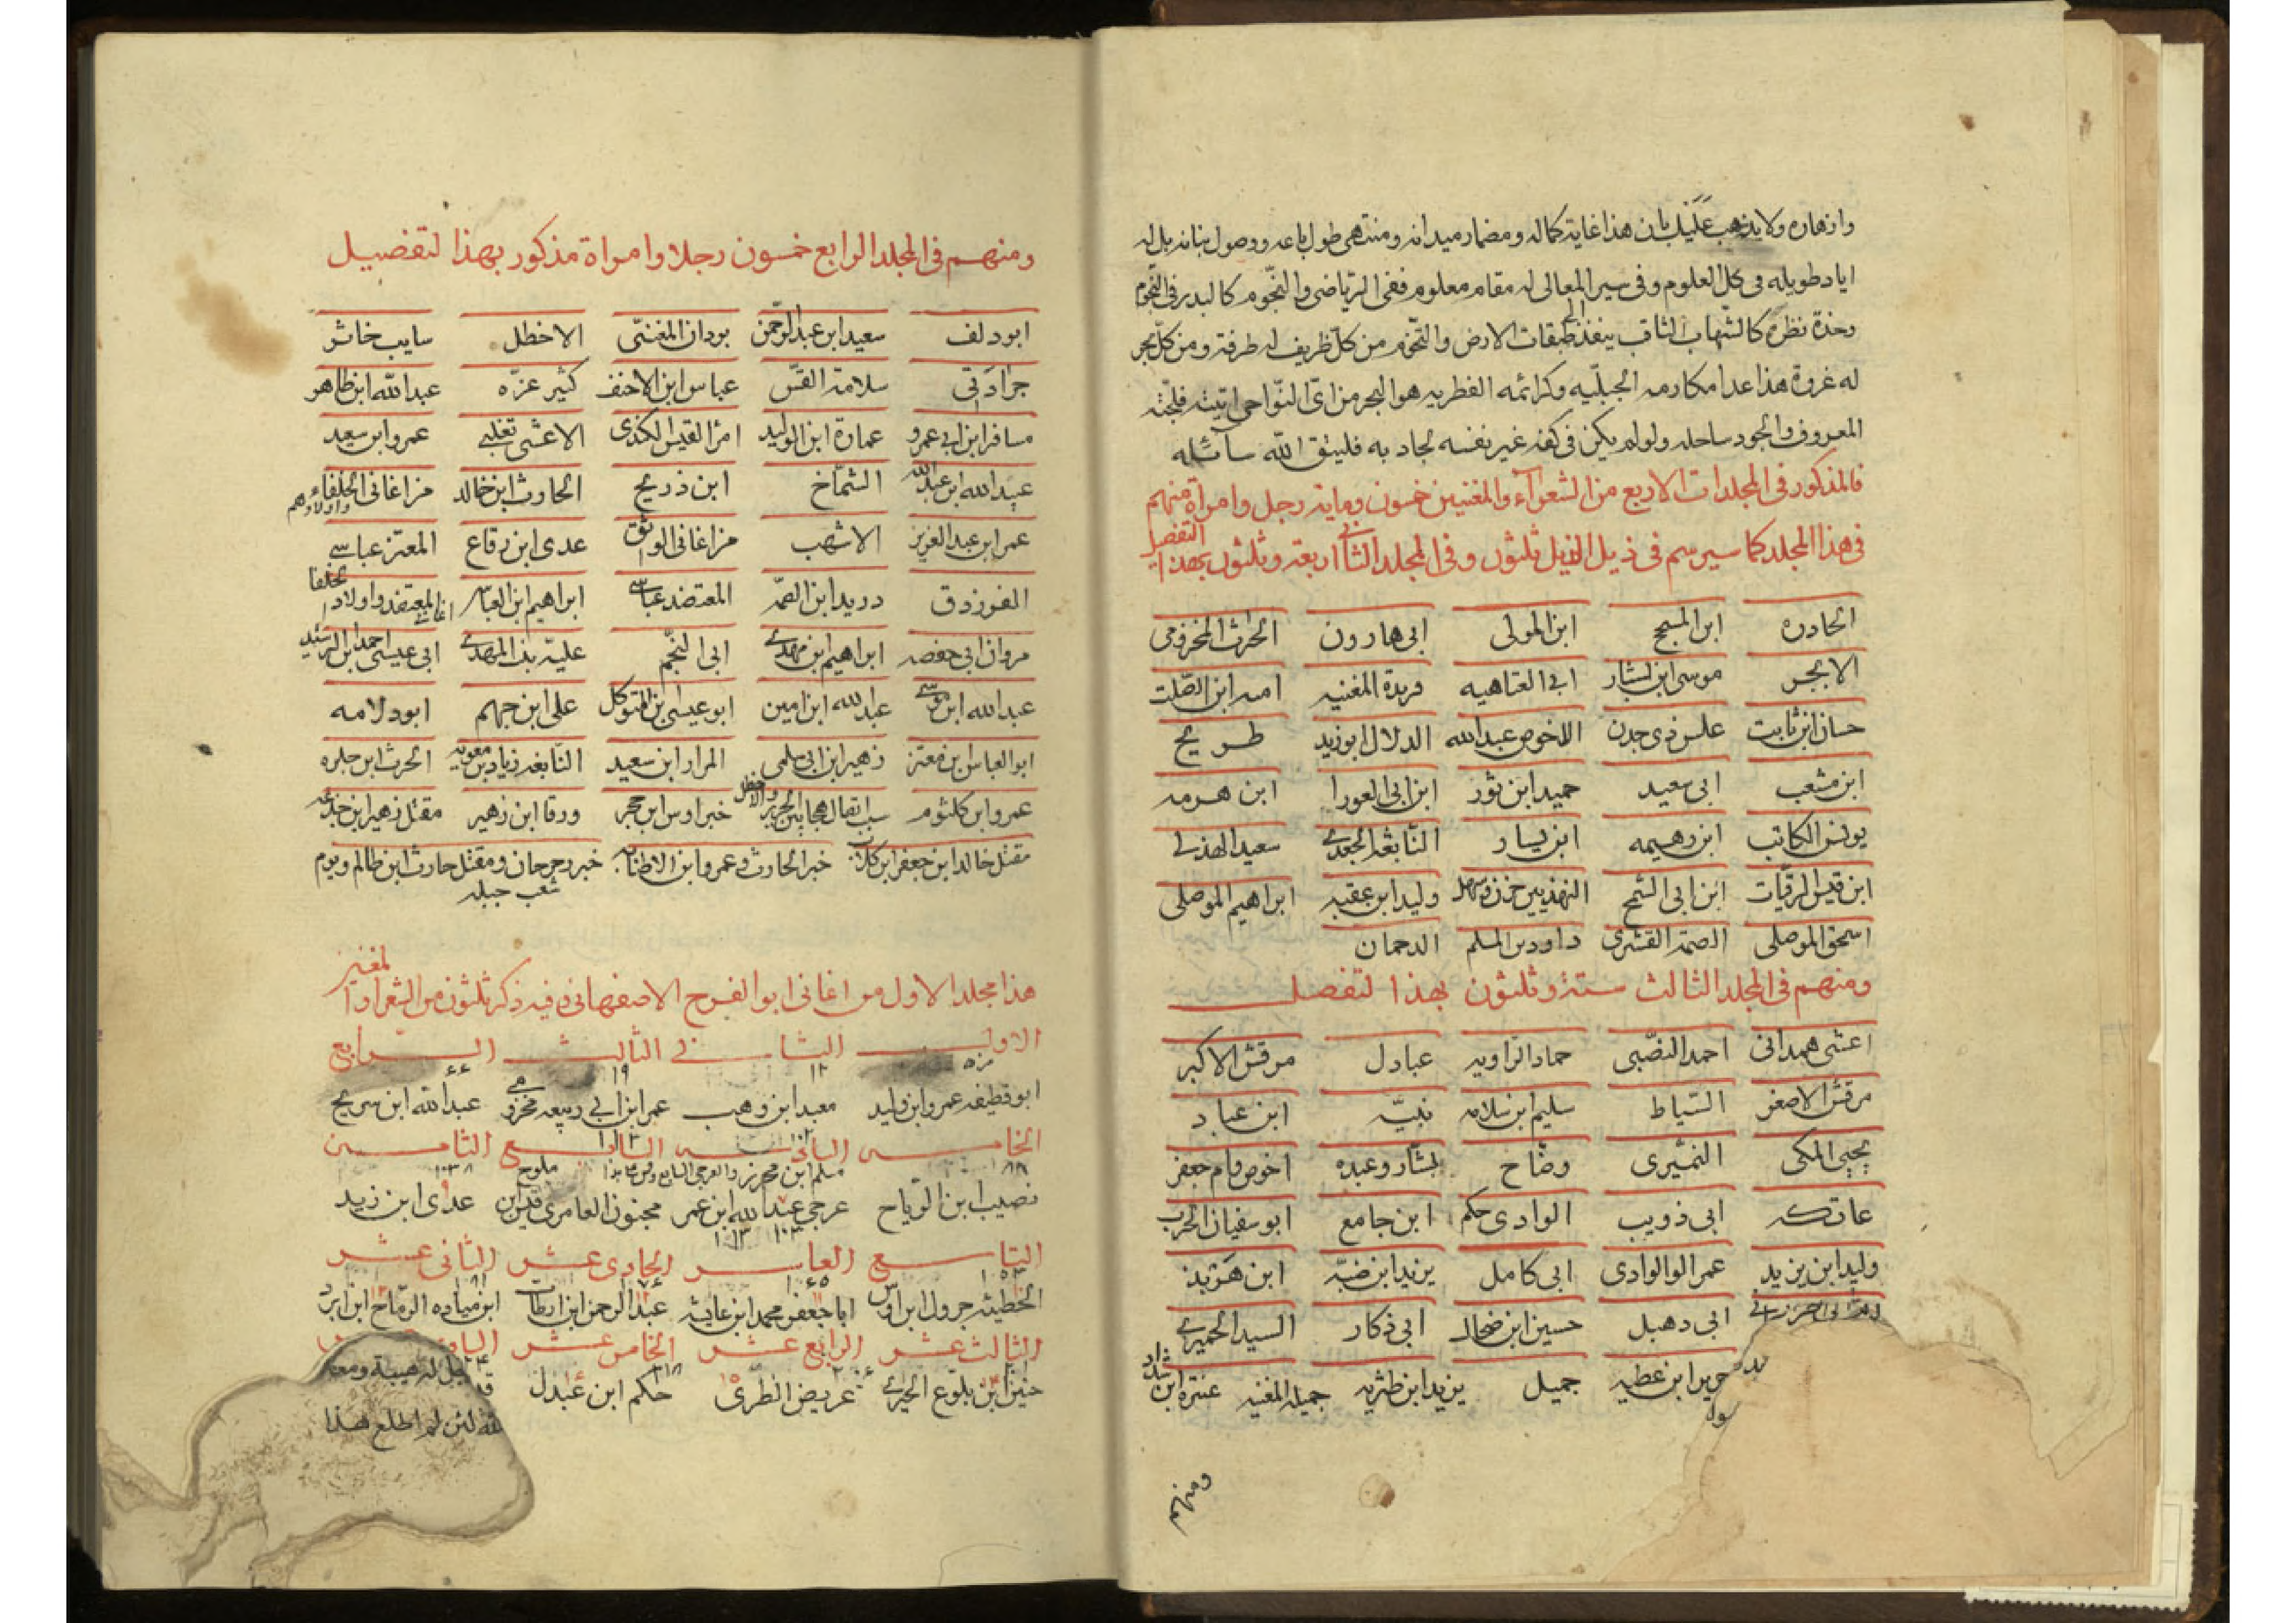 وازهاره ولا يذهب عليك بان هذا غاية كماله ومضمار ميدانه ومنتهى طول باعه ووصول بنانه بل له
اياد طويله فى كل العلوم وفى سير المعالى له مقام معلوم ففى الرياضى والنجوم كالبدر فى النجوم
وحدة نظره كالشهاب الثاقب ينفذ الى طبقات الارض والتخوم من كل ظريف له طرفة ومن كل بحر
له غرفة هذا عدا مكارمه الجبليه وكرائمه الفطريه هو البحر من اى النواحى اتيته فلجته
المعروف والجود ساحله ولو لم يكن فى كفه غير نفسه لجاد به فليتق الله سائله
فالمذكور فى المجلدات الاربع من الشعراء والمغنيين خمسون وماية رجل وامراة منهم
فى هذا المجلد كما سيرسم فى ذيل الذيل ثلثون وفى المجلد الثانى اربعة وثلثون بهذا التفصيل
الحادره ابن المسجح ابن المولى ابى هارون الحرث المخزومى
الابجر موسى ابن بشار ابى العتاهيه فريدة المغنيه اميه ابن الصلت
حسان ابن ثابت علس ذى جدن الاخوص عبدالله الدلال ابوزيد طريح
ابن مشعب ابى سعيد حميد ابن ثور ابن ابى العورا ابن هرمه
يونس الكاتب ابن رهيمه ابن يسار النابغه الجعدى سعيد الهذلى
ابن قيس الرقيات ابن ابى الشمح الهذيين حزن وسهل وليد ابن عقبه ابراهيم الموصلى
اسحق الموصلى الصمة القشرى داود بن المسلم الدحمان
ومنهم فى المجلد الثالث ستة وثلثون بهذا لتفصيل
اعشى همدانى احمد النصبى حماد الراويه عبادل مرقش الاكبر
مرقش الاصغر السياط سليم ابن سلامه نبيه ابن عباد
يحيى المكى النميرى وضاح بشار وعبده اخوص وام جعفر
عاتكه ابى ذويب الوادى حكم ابن جامع ابو سفيان الحرب
وليد ابن يزيد عمر الوالوادى ابى كامل يزيد ابن ضبه ابن هربذ
ابى دهبل حسين ابن ضحاك ابى ذكار السيد الحميرى
جرير ابن عطيه جميل يزيد ابن طثريه جميله المغنيه عنترة ابن شداد
ومنهم
ومنهم فى المجلد الرابع خمسون رجلا وامراة مذكور بهذا لتفضيل
ابودلف سعيد ابن عبدالرحمن بودان المغنى الاخطل سايب خاثر
جرادتى سلامة القس عباس ابن الاحنف كثير عزه عبدالله ابن طاهر
مسافر ابن ابى عمرو عمارة ابن الوليد امرا القيس الكندى الاعشى تغلبى عمرو ابن سعيد
عبيدالله ابن عبدالله الشماخ ابن ذريح الحارث ابن خالد من اغانى الخلفاء واولادهم
عمر ابن عبدالعزيز الاشهب من اغانى الواثق عدى ابن رقاع المعتز عباسى
الفرزدق دريد ابن الصمه المعتضد عباسى ابراهيم ابن العباس اغانى المعتضد واولاد الخلفا
مروان ابى حفصه ابراهيم ابن مهدى ابى النجم عليه بنت المهدى ابى عيسى احمد ابن الرشيد
عبدالله ابن موسى عبدالله ابن امين ابوعيسى بن المتوكل على ابن جهم ابودلامه
ابوالعباس بن معتز زهير ابن ابى سلمى المرار ابن سعيد النابغه زياد بن معويه الحرث ابن حلزه
عمرو ابن كلثوم سبب اتصال هجا بين الجرير والاخطل خبر اوس ابن حجر ورقا ابن زهير مقتل زهير ابن جذيمه
مقتل خالد ابن جعفر ابن كلاب خبر الحارث وعمرو ابن الاطنابه خبر رحرحان ومقتل حارث ابن ظالم ويوم
شعب جبله
هذا مجلد الاول من اغانى ابوالفرج الاصفهانى وفيه ذكر ثلثون من الشعرا والمغنيين
الاول الثانى الثالث الرابع
ابو قطيفه عمرو ابن وليد معبد ابن وهب عمر ابن ابى ربيعه مخزومى عبدالله ابن سريج
الخامس السادس السابع الثامن
نصيب ابن الرياح عرجى عبدالله ابن عمر مجنون العامرى قيس ابن ملوح عدى ابن زيد
التاسع العاشر الحادى عشر الثانى عشر
الحطيئه جرول ابن اوس اباجعفر محمد ابن عايشه عبدالرحمن ابن ارطات ابن مياده الرماح ابن ابرد
الثالث عشر الرابع عشر الخامس عشر
حنين ابن بلوع الحيرى غريض الطرى حكم ابن عبدل
رجل له هيبة ومعه
لئن لم اطلع هذا